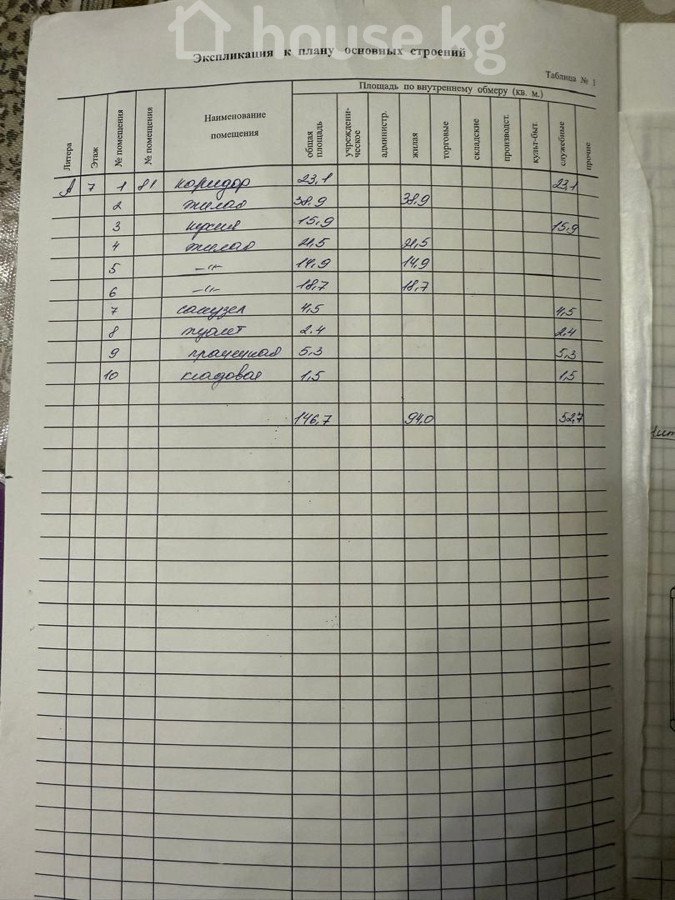 house.kg
Экспликация к плану основных строений
Таблица № 1
Литера Этаж № помещения № помещения Наименование помещения Площадь по внутреннему обмеру (кв. м.)
общая площадь учреждени-ческое администр. жилая торговые складские производст. культ-быт. служебные прочие
А 7 1 81 коридор 23,1 23,1
2 жилая 38,9 38,9
3 кухня 15,9 15,9
4 жилая 21,5 21,5
5 –"– 14,9 14,9
6 –"– 18,7 18,7
7 санузел 4,5 4,5
8 туалет 2.4 2.4
9 прачечная 5,3 5,3
10 кладовая 1,5 1,5
146,7 94,0 52,7